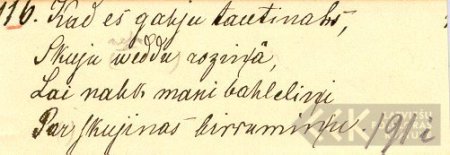 116. Kad es gahju tautinahs,
Skuju weddu roziņâ,
Lai nahk mani bahleliņi
Par skujinas birrumiņu. 191